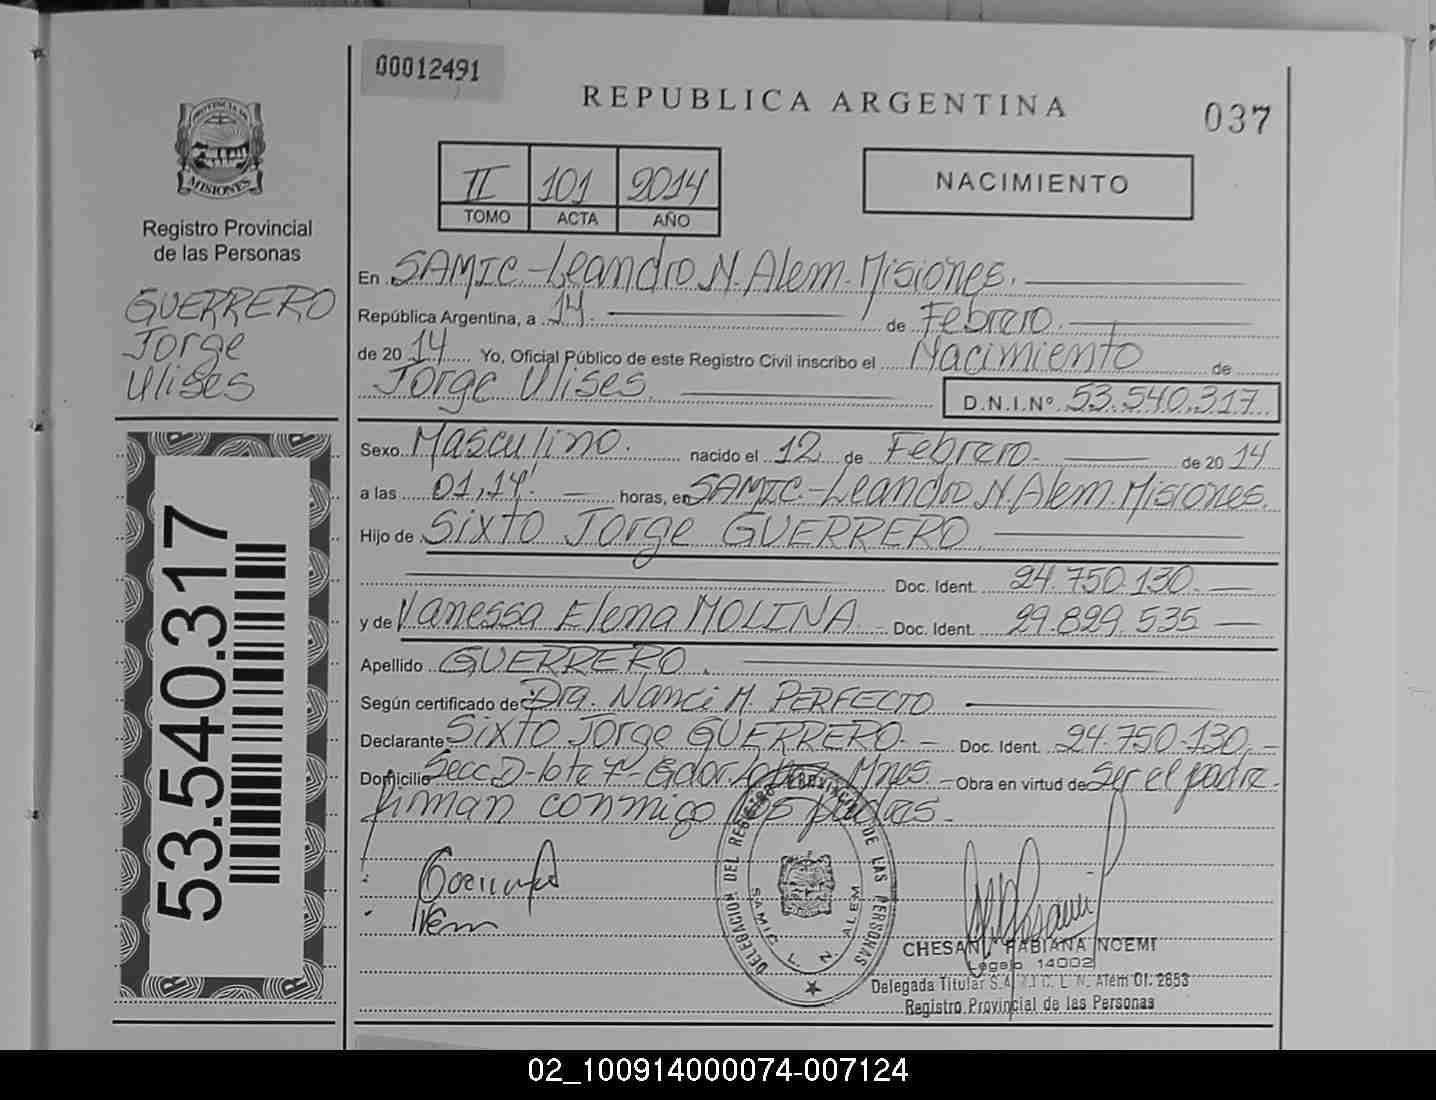 00012491
REPUBLICA ARGENTINA
037
PROVINCIA DE
MISIONES
Registro Provincial
de las Personas
GUERRERO
Jorge
Ulises
II 101 2014
TOMO ACTA AÑO
NACIMIENTO
En SAMIC.-Leandro N. Alem-Misiones.
República Argentina, a 14. de Febrero.
de 20 14 Yo, Oficial Público de este Registro Civil inscribo el Nacimiento de
Jorge Ulises. D.N.I.Nº 53.540.317.
53.540.317
Sexo Masculino. nacido el 12 de Febrero- de 20 14
a las 01,14' horas, en SAMIC.-Leandro N. Alem. Misiones.
Hijo de Sixto Jorge GUERRERO
Doc. Ident. 24.750.130.
y de Vanessa Elena MOLINA.- Doc. Ident. 29.829.535
Apellido GUERRERO.
Según certificado de Dra. Nanci M. PERFECTO
Declarante Sixto Jorge GUERRERO.- Doc. Ident. 24.750.130.-
Domicilio Secc.D-lote - Gdor. Lopez- Mnes.- Obra en virtud de Ser el padre.
firman conmigo los padres.-
DELEGACION DEL REGISTRO PROVINCIAL DE LAS PERSONAS
SAMIC L. N. ALEM
CHESANI FABIANA NOEMI
Legajo 14002
Delegada Titular S.A.M.I.C. L. N. Alem Of. 2853
Registro Provincial de las Personas
02_100914000074-007124